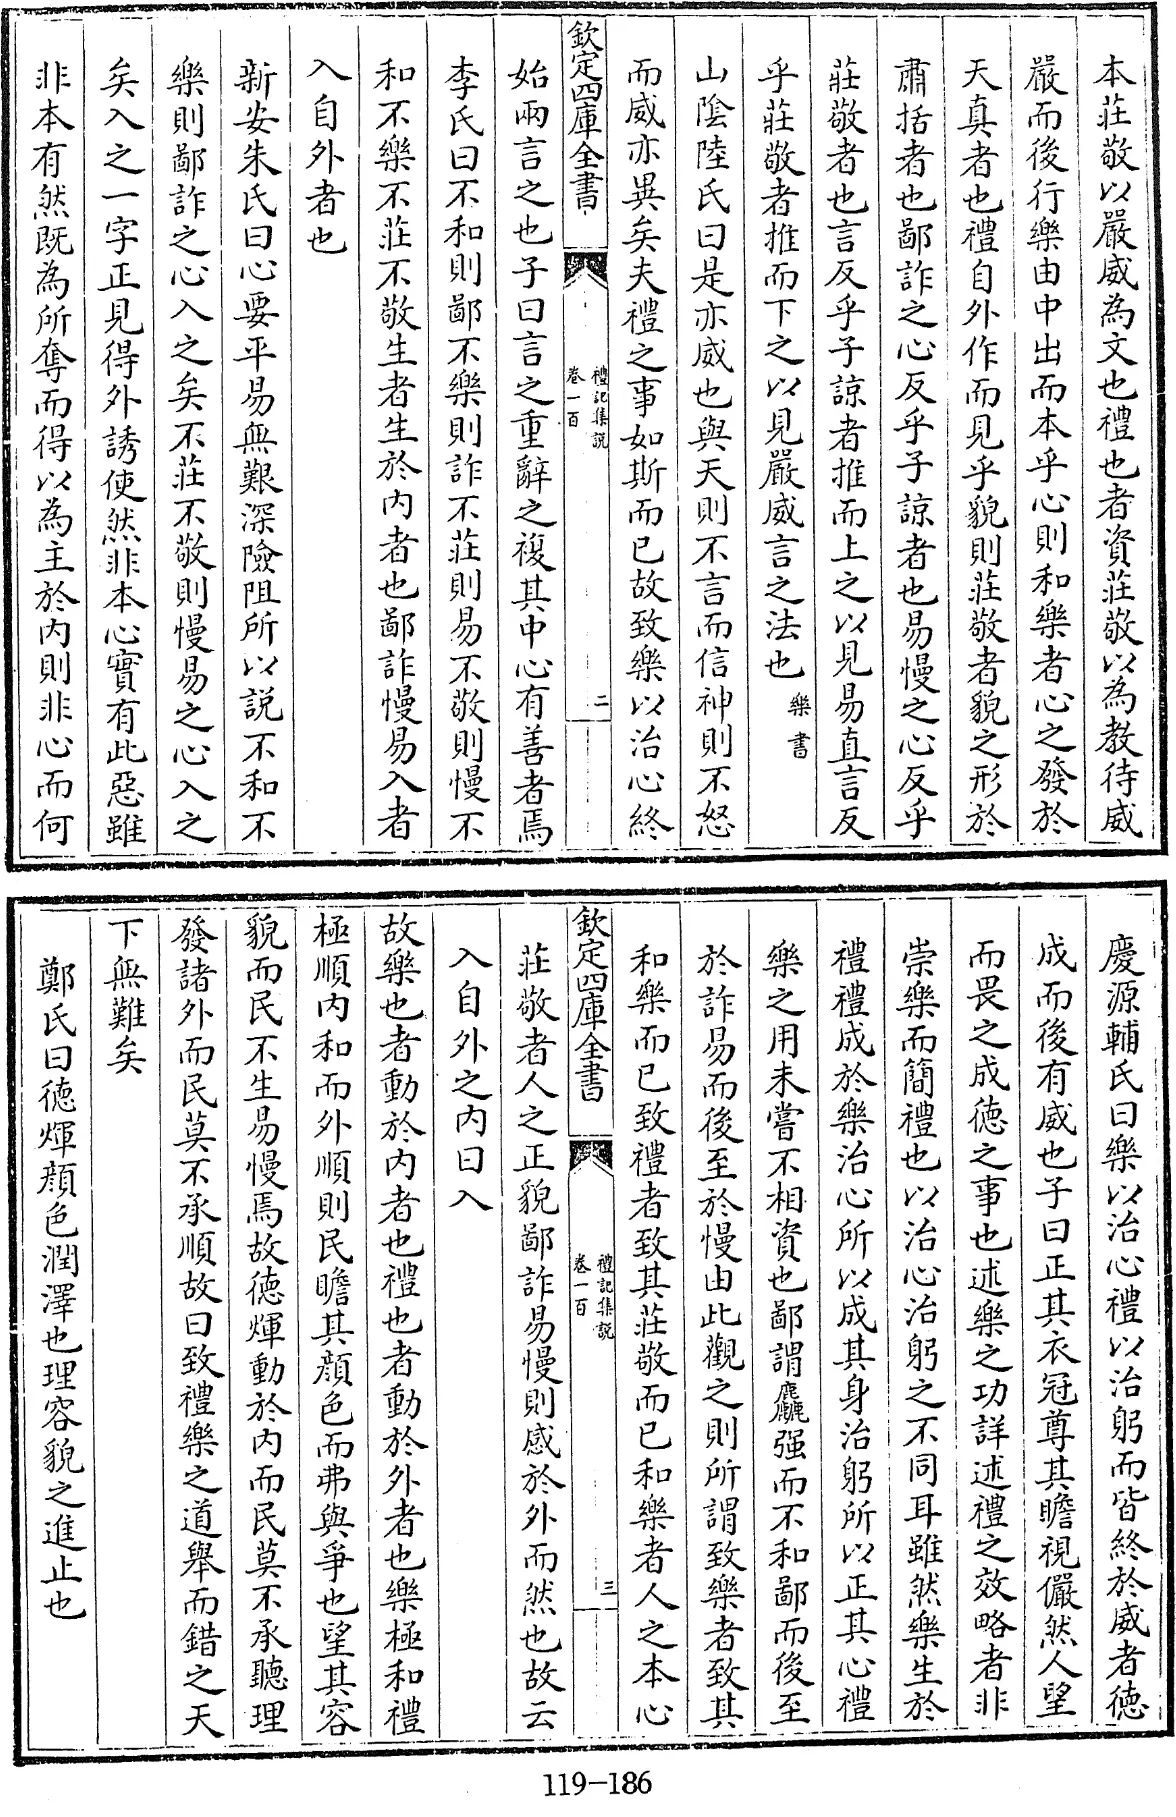 本莊敬以嚴威為文也禮也者資莊敬以為教待威
嚴而後行樂由中出而本乎心則和樂者心之發於
天真者也禮自外作而見乎貌則莊敬者貌之形於
肅括者也鄙詐之心反乎子諒者也易慢之心反乎
莊敬者也言反乎子諒者推而上之以見易直言反
乎莊敬者推而下之以見嚴威言之法也樂書
山陰陸氏曰是亦威也與天則不言而信神則不怒
而威亦異矣夫禮之事如斯而已故致樂以治心終
欽定四庫全書
禮記集說
卷一百
二
始兩言之也子曰言之重辭之複其中心有善者焉
李氏曰不和則鄙不樂則詐不莊則易不敬則慢不
和不樂不莊不敬生者生於內者也鄙詐慢易入者
入自外者也
新安朱氏曰心要平易無艱深險阻所以說不和不
樂則鄙詐之心入之矣不莊不敬則慢易之心入之
矣入之一字正見得外誘使然非本心實有此惡雖
非本有然既為所奪而得以為主於內則非心而何
慶源輔氏曰樂以治心禮以治躬而皆終於威者德
成而後有威也子曰正其衣冠尊其瞻視儼然人望
而畏之成德之事也述樂之功詳述禮之效略者非
崇樂而簡禮也以治心治躬之不同耳雖然樂生於
禮禮成於樂治心所以成其身治躬所以正其心禮
樂之用未嘗不相資也鄙謂麤强而不和鄙而後至
於詐易而後至於慢由此觀之則所謂致樂者致其
和樂而已致禮者致其莊敬而已和樂者人之本心
欽定四庫全書
禮記集說
卷一百
三
莊敬者人之正貌鄙詐易慢則感於外而然也故云
入自外之內曰入
故樂也者動於內者也禮也者動於外者也樂極和禮
極順內和而外順則民瞻其顏色而弗與爭也望其容
貌而民不生易慢焉故德煇動於內而民莫不承聽理
發諸外而民莫不承順故曰致禮樂之道舉而錯之天
下無難矣
鄭氏曰德煇顏色潤澤也理容貌之進止也
119-186